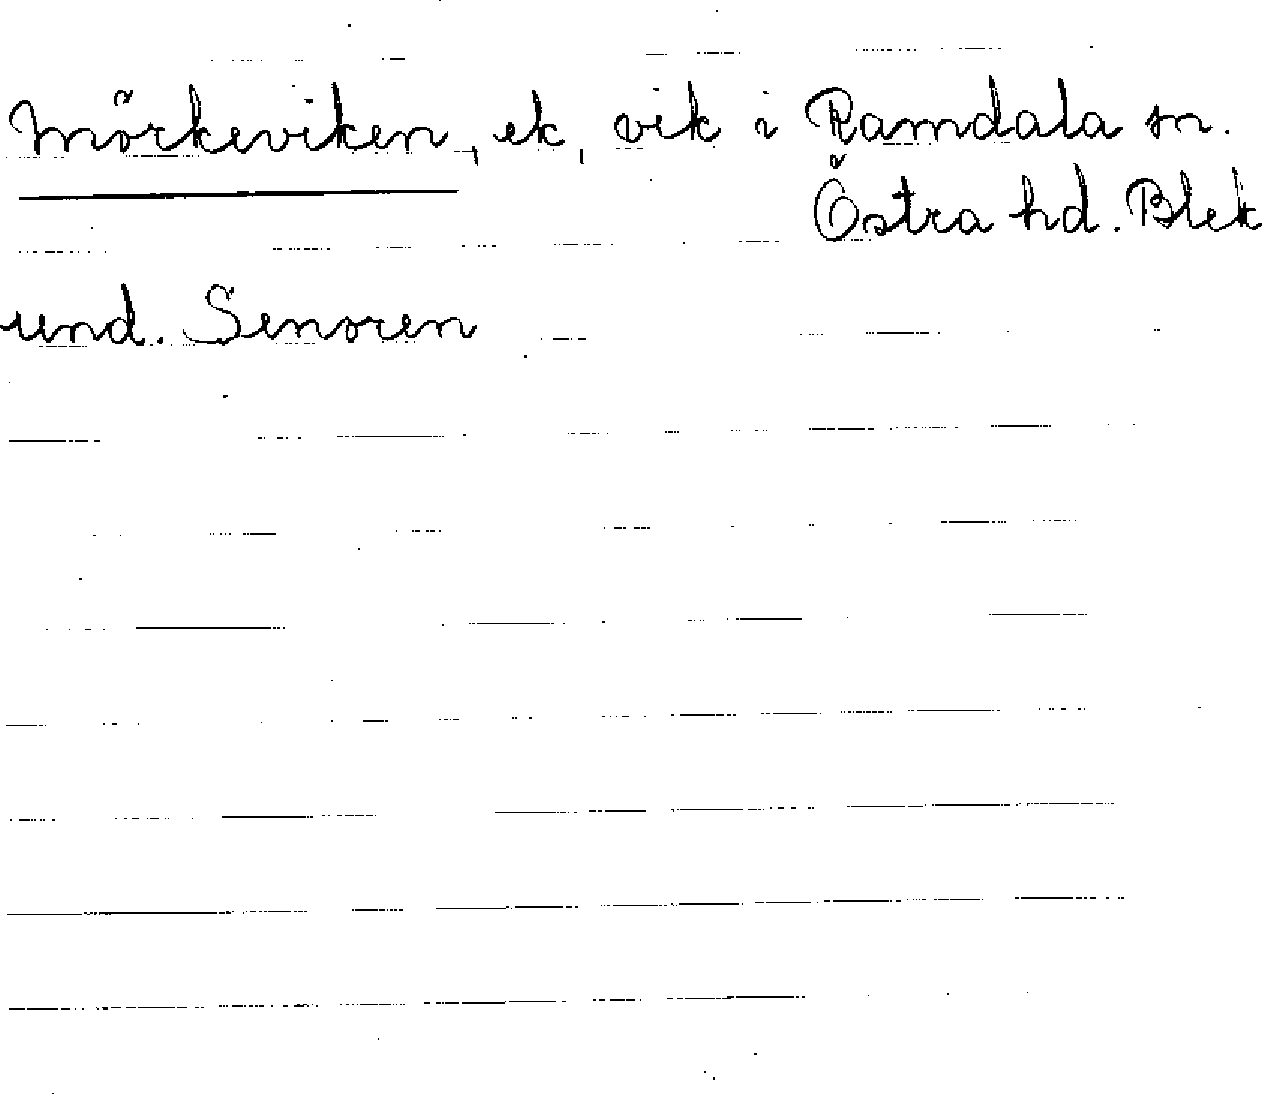 Mörkeviken, ek, vik i Ramdala sn.
Östra hd. Blek
und. Senoren